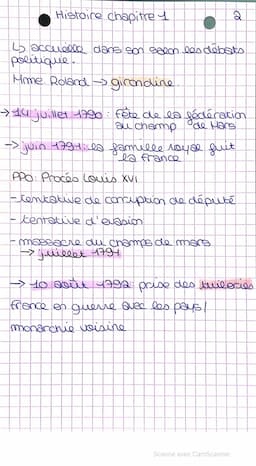 Histoire chapitre 1 2
↳ accueille dans son salon les débats
politique.
Mme Roland → girondine
→ 14 juillet 1790 : Fête de la fédération
au champ de Mars
→ juin 1791 : la famille royale fuit
la France
PPO: Procès Louis XVI
- tentative de corruption de député
- tentative d'evasion
- massacre du champs de mars
→ juillet 1791
→ 10 août 1792 prise des tuileries
france en guerre avec les pays/
monarchie voisine
Scanné avec CamScanner